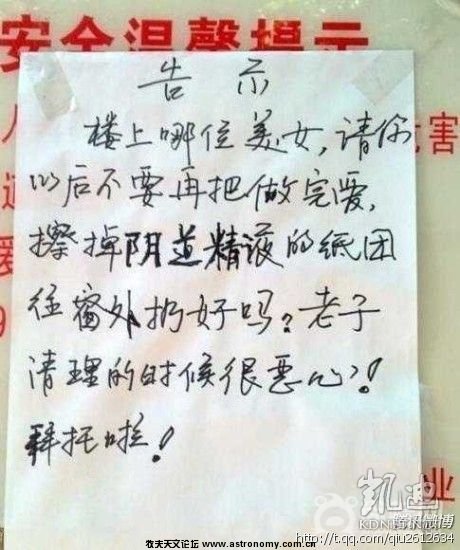 安全温馨提示
告示
楼上哪位美女,请你
以后不要再把做完爱,
擦掉阴道精液的纸团
往窗外扔好吗?老子
清理的时候很恶心!
拜托啦!
害
业
凯迪
腾讯微博
KDN
http://t.qq.com/qiu2612634
牧夫天文论坛 www.astronomy.com.cn